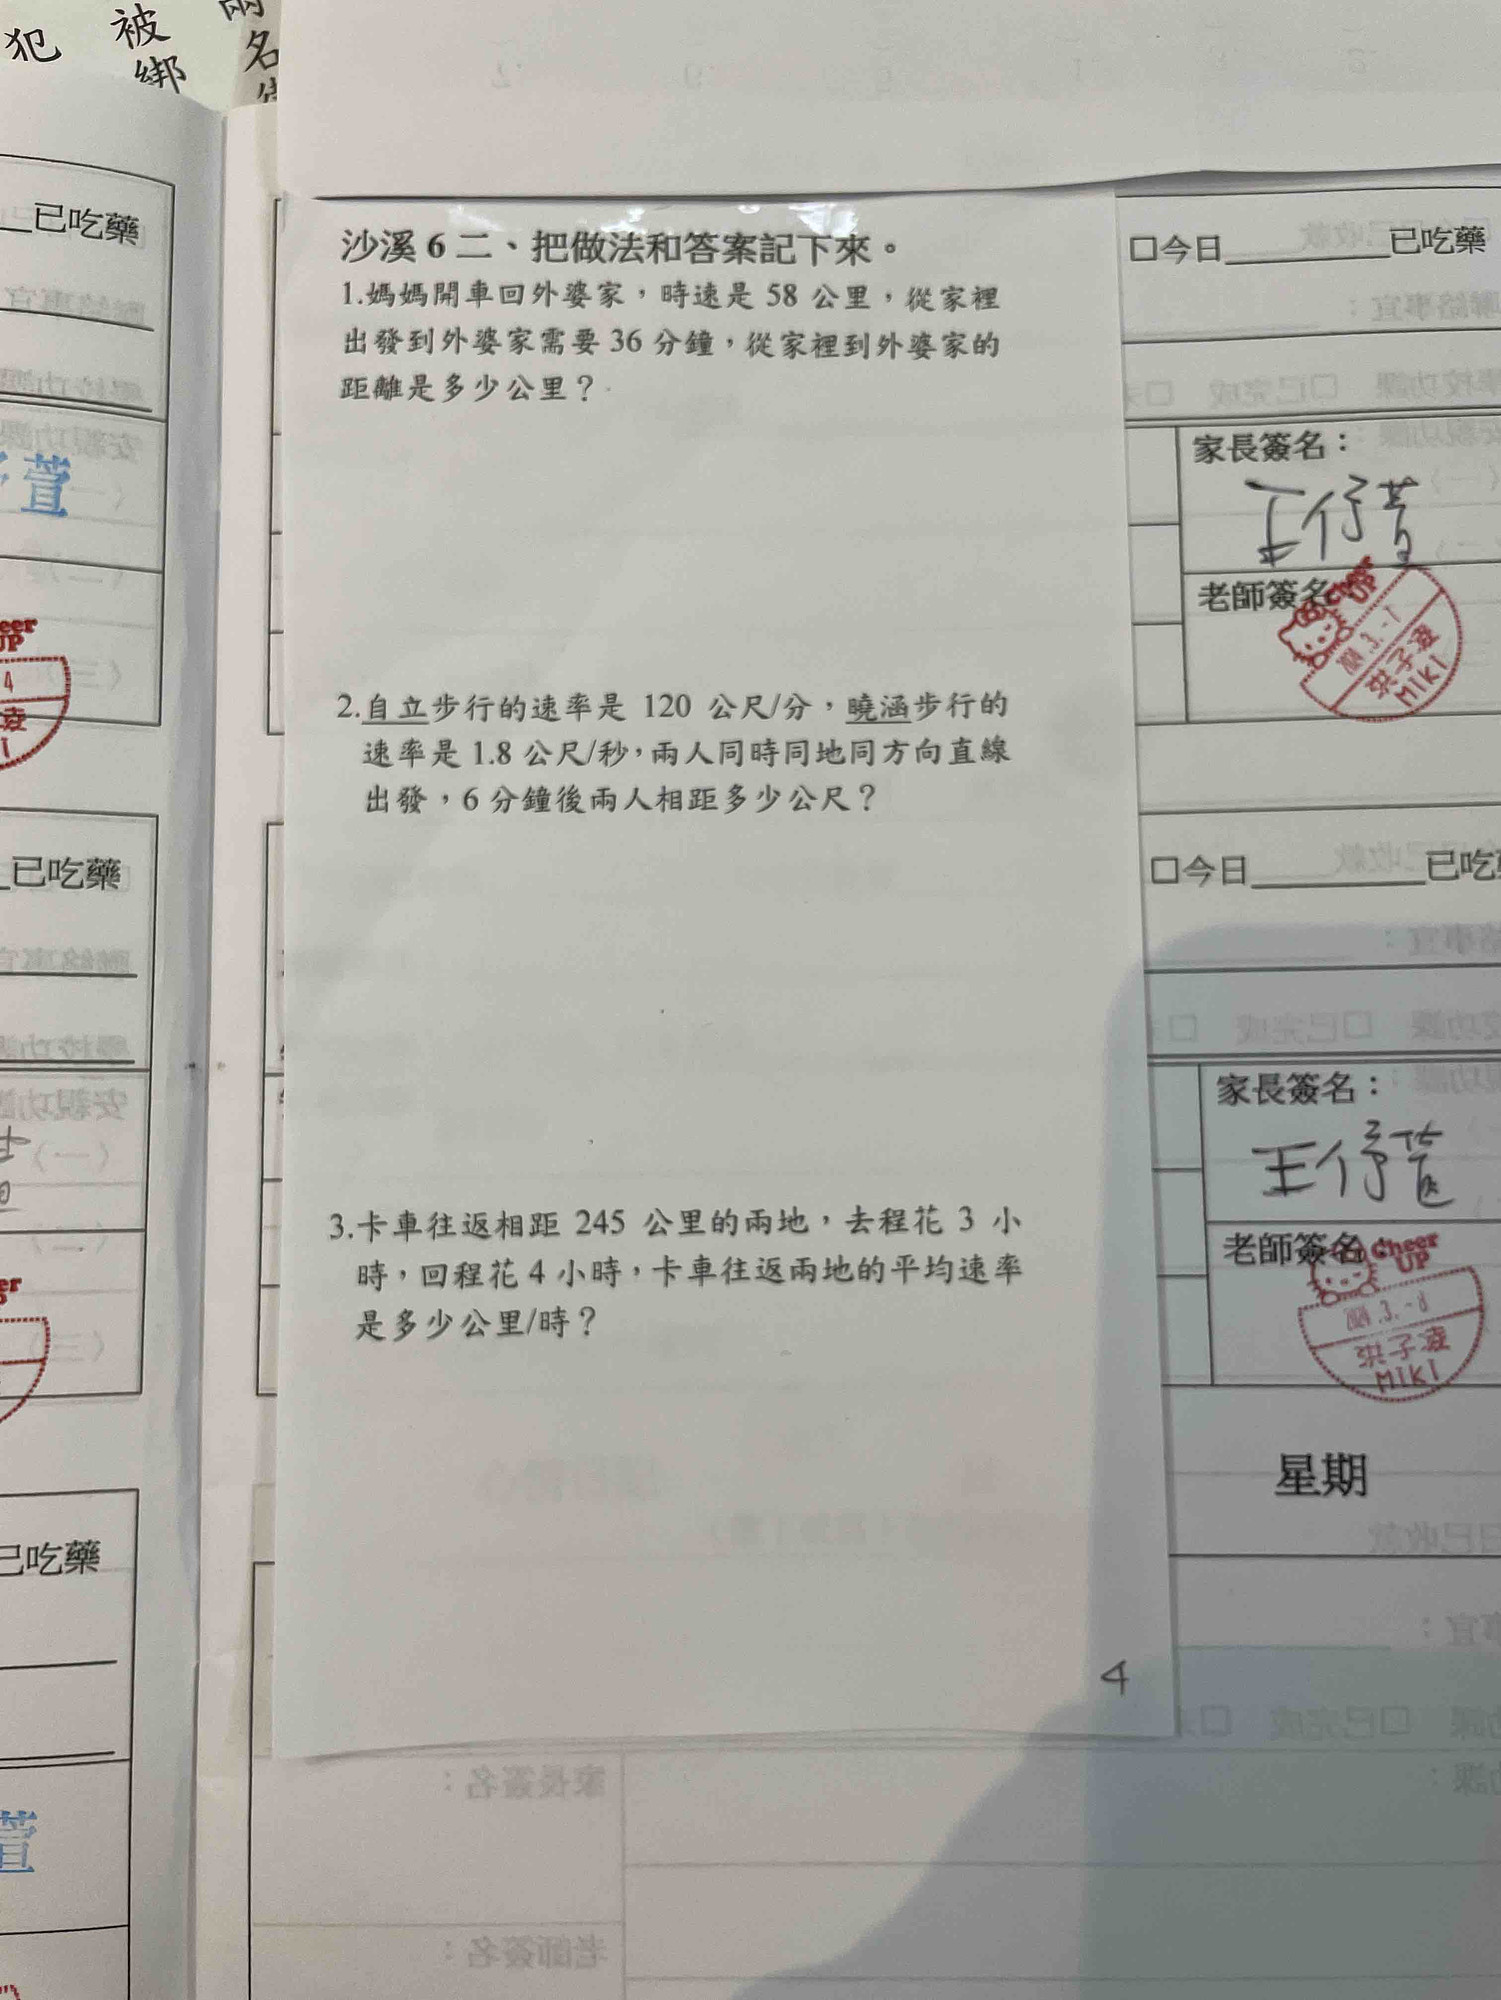 犯
被
綁
兩
名
已吃藥
萱
沙溪 6 二、把做法和答案記下來。
1.媽媽開車回外婆家,時速是 58 公里,從家裡
出發到外婆家需要 36 分鐘,從家裡到外婆家的
距離是多少公里?
2.自立步行的速率是 120 公尺/分,曉涵步行的
速率是 1.8 公尺/秒,兩人同時同地同方向直線
出發,6 分鐘後兩人相距多少公尺?
3.卡車往返相距 245 公里的兩地,去程花 3 小
時,回程花 4 小時,卡車往返兩地的平均速率
是多少公里/時?
4
□今日__________已吃藥
家長簽名:
老師簽名
Cheer
UP
洪子凌
MIKI
已吃藥
□今日__________已吃
家長簽名:
老師簽名
Cheer
UP
洪子凌
MIKI
星期
已吃藥
萱
家長簽名:
老師簽名: